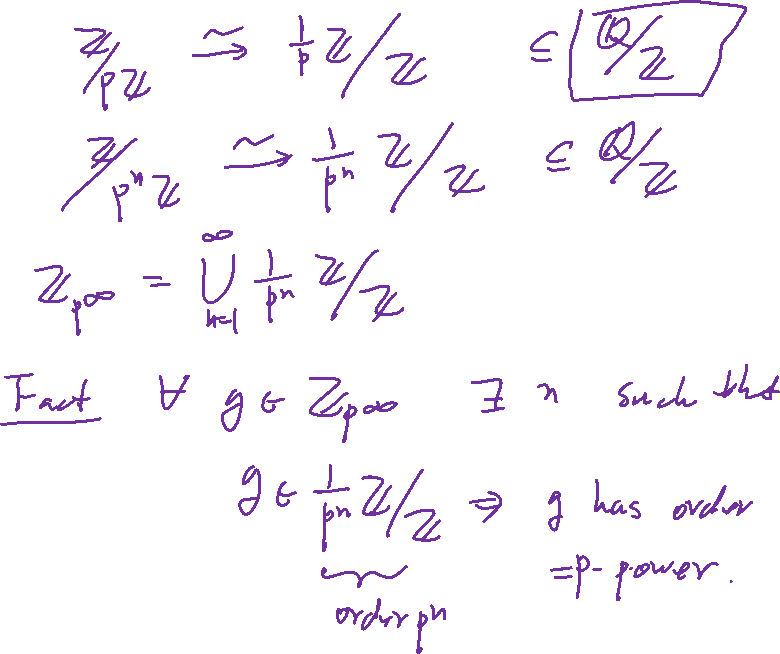 ℤ/pℤ ⥲ 1/p ℤ/ℤ ⊆ ℚ/ℤ
ℤ/pⁿℤ ⥲ 1/pⁿ ℤ/ℤ ⊆ ℚ/ℤ
ℤ_p∞ = ⋃_{n=1}^∞ 1/pⁿ ℤ/ℤ
Fact ∀ g ∈ ℤ_p∞ ∃ n such that
g ∈ 1/pⁿ ℤ/ℤ ⇒ g has order
order pⁿ = p-power.